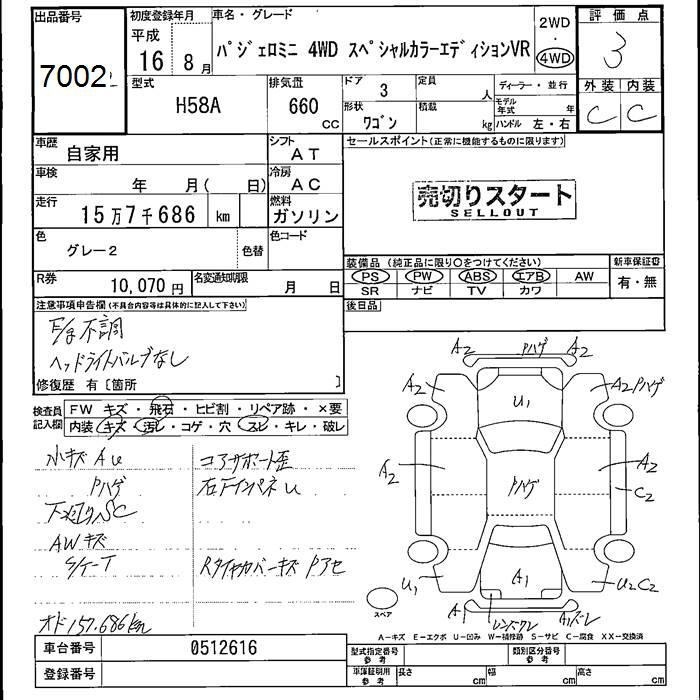 出品番号
7002
初度登録年月
平成
16 8月
車名・グレード
パジェロミニ 4WD スペシャルカラーエディションVR
2WD
・
4WD
評価点
3
外装 内装
C C
型式
H58A
排気量
660
cc
ドア
3
形状
ワゴン
定員
人
積載
kg
ディーラー・並行
モデル年式 年
ハンドル 左・右
車歴
自家用
シフト
AT
車検
年 月( 日)
冷房
AC
走行
15万7千686 km
燃料
ガソリン
色
グレー2
色替
色コード
R券
10,070円
名変通知期限
月 日
セールスポイント(正常に機能するものに限ります)
売切りスタート
SELLOUT
装備品(純正品に限り○をつけてください)
新車保証書
PS PW ABS エアB AW
SR ナビ TV カワ
有・無
後日品
注意事項申告欄(不具合内容等は具体的に記入して下さい)
F/g不調
ヘッドライトバルブなし
修復歴 有〔箇所 〕
検査員記入欄
FW キズ・飛石・ヒビ割・リペア跡・×要
内装・キズ・汚レ・コゲ・穴・スレ・キレ・破レ
小キズAU
Pハゲ
下廻りSC
AWキズ
S/ケーT
オド157.686km
コアサポート歪
右FインパネU
RタイヤカバーキズPアセ
A2 Pハゲ A2
A2 U1 A2 Pハゲ
A2 Pハゲ A2
C2
U1 A1 U2 C2
スペア
A レンズワレ A1ズレ
A-キズ E-エクボ U-凹み W-補修跡 S-サビ C-腐食 XX-交換済
車台番号
0512616
登録番号
型式指定番号
参考
類別区分番号
参考
車庫証明用
参考
長さ cm 幅 cm 高さ cm